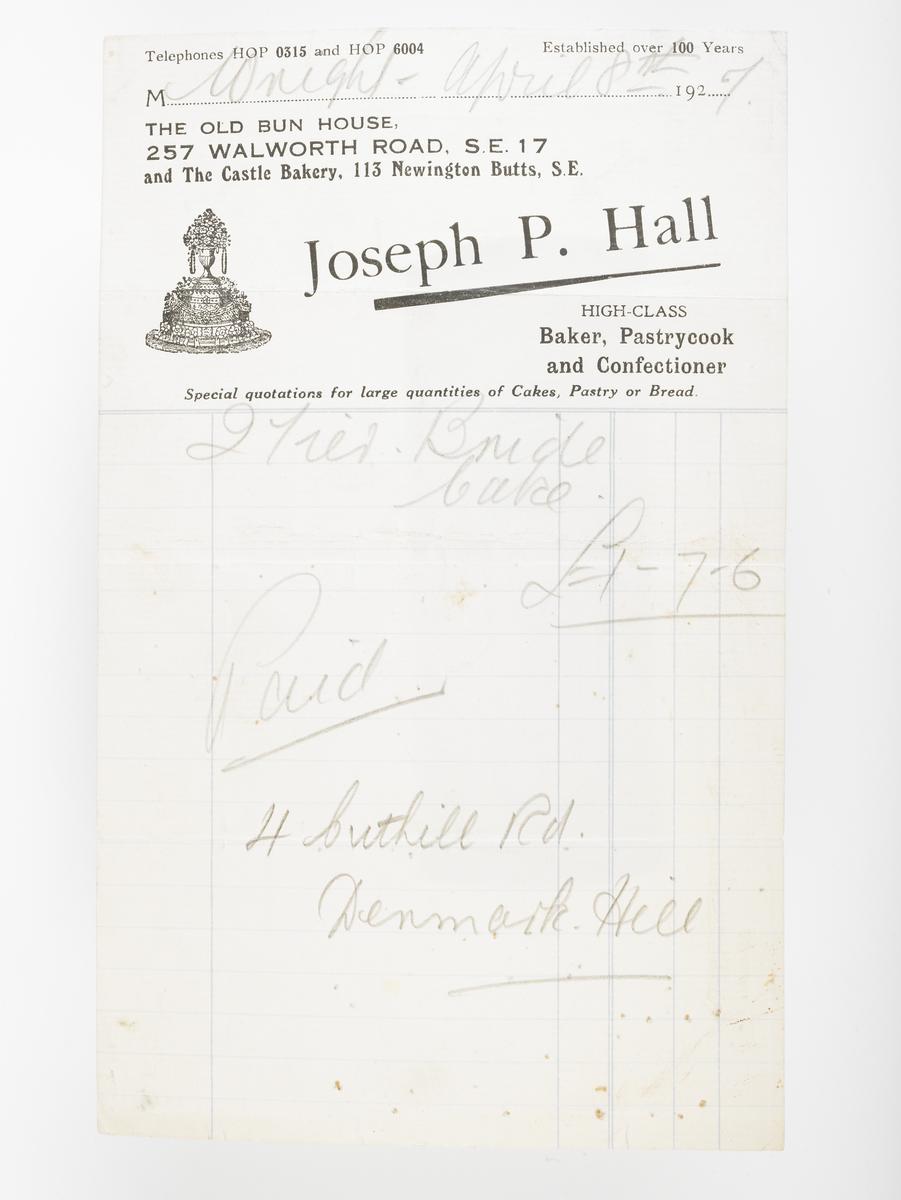 Telephones HOP 0315 and HOP 6004 Established over 100 Years
M Wright - April 8th 1927.
THE OLD BUN HOUSE,
257 WALWORTH ROAD, S.E. 17
and The Castle Bakery, 113 Newington Butts, S.E.
Joseph P. Hall
HIGH-CLASS
Baker, Pastrycook
and Confectioner
Special quotations for large quantities of Cakes, Pastry or Bread.
2 Tier. Bride
Cake.
£1-7-6
Paid
4 Cuthill Rd.
Denmark. Hill